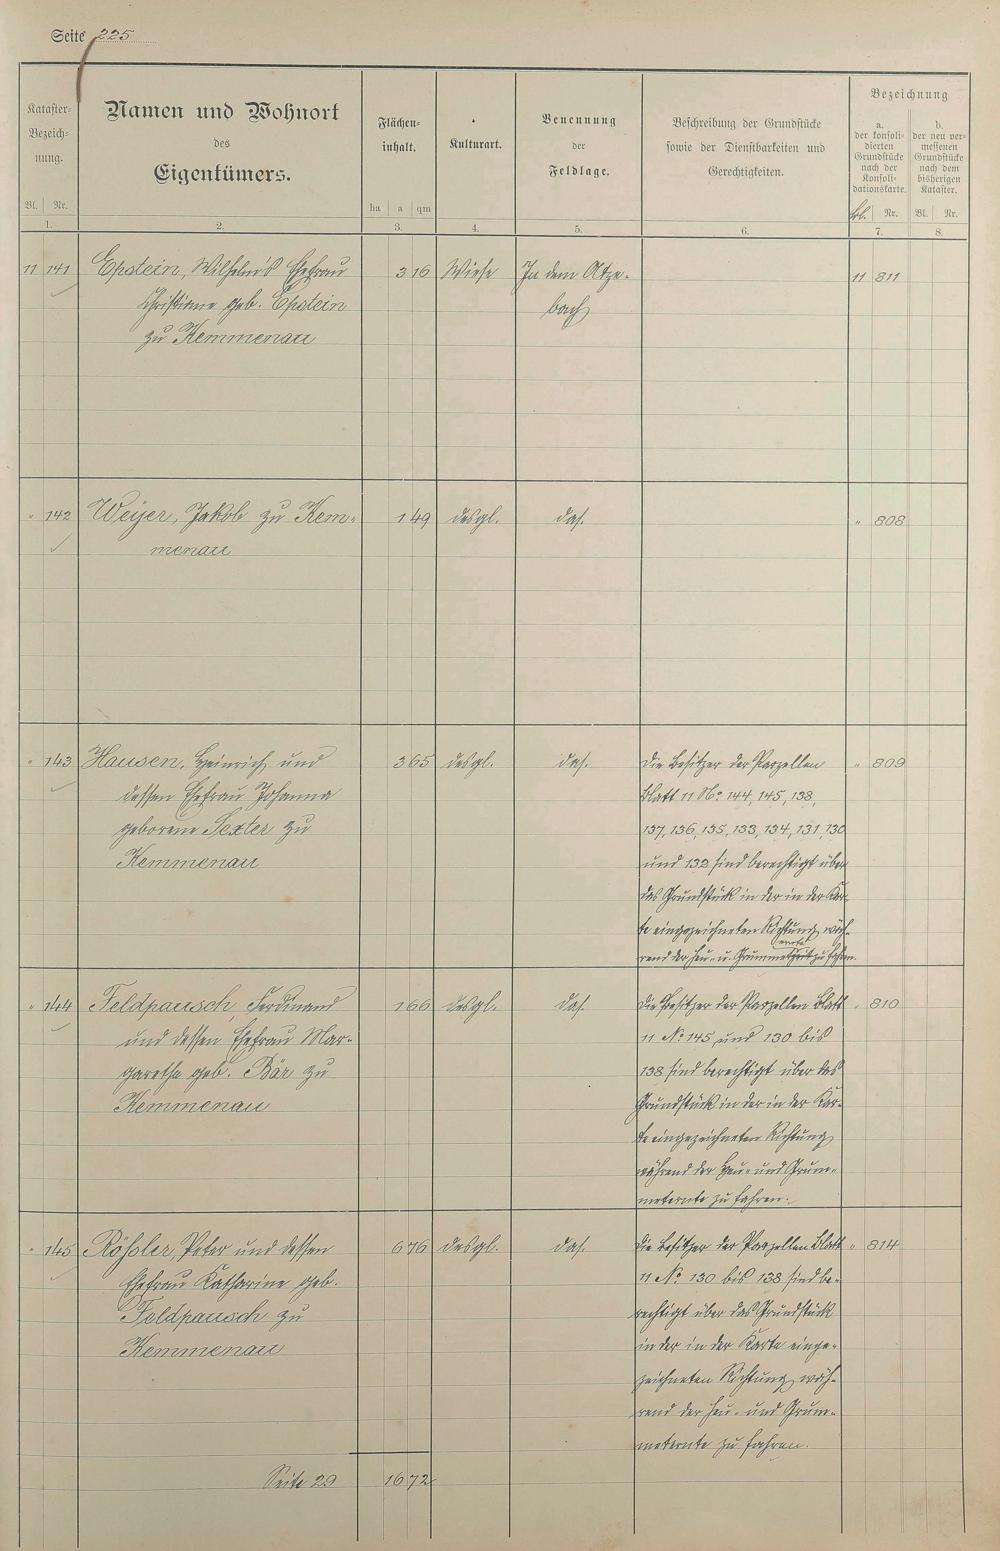 Seite 225
Kataster-
Bezeich-
nung.
Bl. Nr.
1.
Namen und Wohnort
des
Eigentümers.
2.
Flächen-
inhalt.
ha a qm
3.
Kulturart.
4.
Benennung
der
Feldlage.
5.
Beschreibung der Grundstücke
sowie der Dienstbarkeiten und
Gerechtigkeiten.
6.
Bezeichnung
a.
der konsoli-
dierten
Grundstücke
nach der
Konsoli-
dationskarte.
Bl. Nr.
7.
b.
der neu ver-
messenen
Grundstücke
nach dem
bisherigen
Kataster.
Bl. Nr.
8.
11 141 Epstein, Wilhelm's Ehefrau 3 16 Wiese In dem Atze- 11 811
Christiane geb. Epstein bach
zu Kemmenau
" 142 Weijer, Jakob zu Kem- 1 49 desgl. das. " 808
menau
" 143 Hausen, Heinrich und 3 65 desgl. das. Die Besitzer der Parzellen " 809
dessen Ehefrau Johanna Blatt 11 No. 144, 145, 138,
geborene Sexter zu 137, 136, 135, 133, 134, 131, 130
Kemmenau und 132 sind berechtigt über
das Grundstück in der in der Kar-
te eingezeichneten Richtung wäh-
rend der Heu- u. Grummeternte zu fahren.
" 144 Feldpausch, Ferdinand 1 66 desgl. das. Die Besitzer der Parzellen Blatt " 810
und dessen Ehefrau Mar- 11 No. 145 und 130 bis
garetha geb. Bär zu 138 sind berechtigt über das
Kemmenau Grundstück in der in der Kar-
te eingezeichneten Richtung
während der Heu- und Grum-
meternte zu fahren.
" 145 Rößler, Peter und dessen 6 76 desgl. das. Die Besitzer der Parzellen Blatt " 814
Ehefrau Katharine geb. 11 No. 130 bis 138 sind be-
Feldpausch zu rechtigt über das Grundstück
Kemmenau in der in der Karte einge-
zeichneten Richtung wäh-
rend der Heu- und Grum-
meternte zu fahren.
Seite 29 16 72